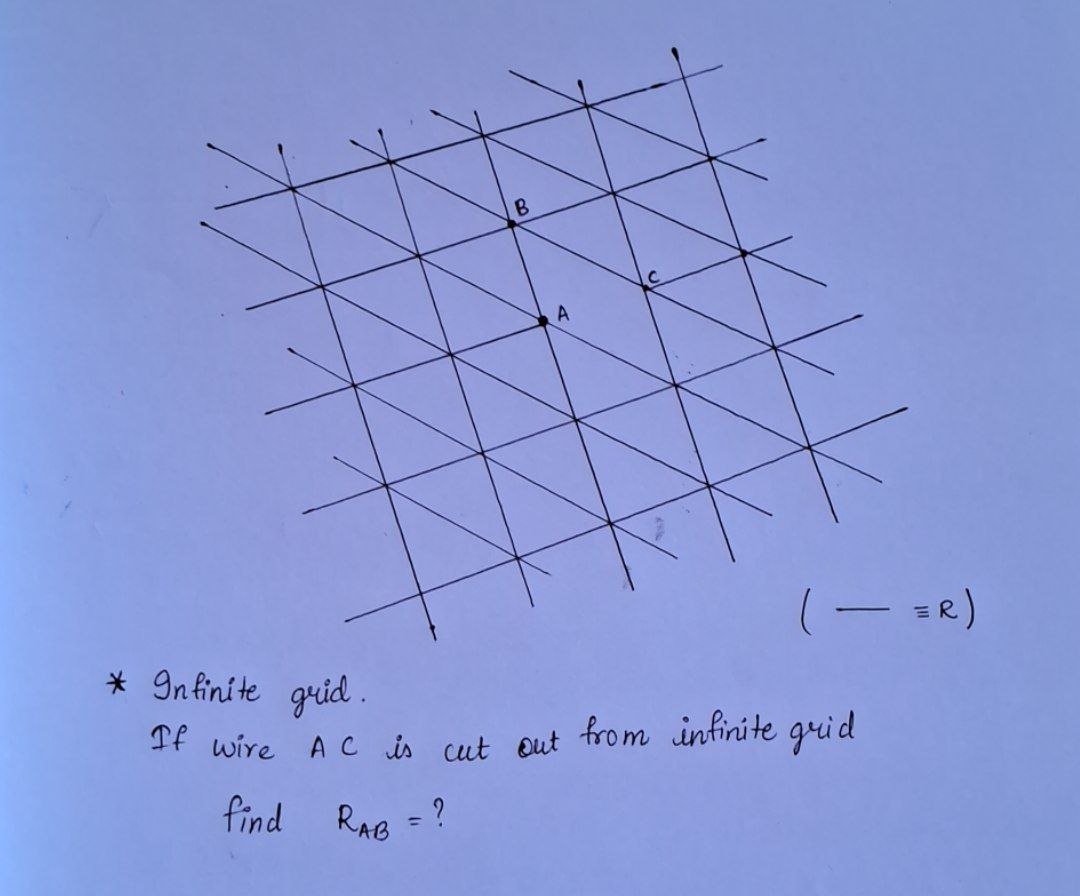 B
C
A
( — ≡ R )
* Infinite grid.
If wire A C is cut out from infinite grid
find R_AB = ?